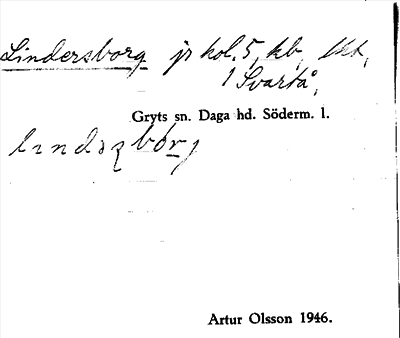 Lindersborg jr kol. 5, kb, lkt,
1 Svartå,
Gryts sn. Daga hd. Söderm. l.
Artur Olsson 1946.